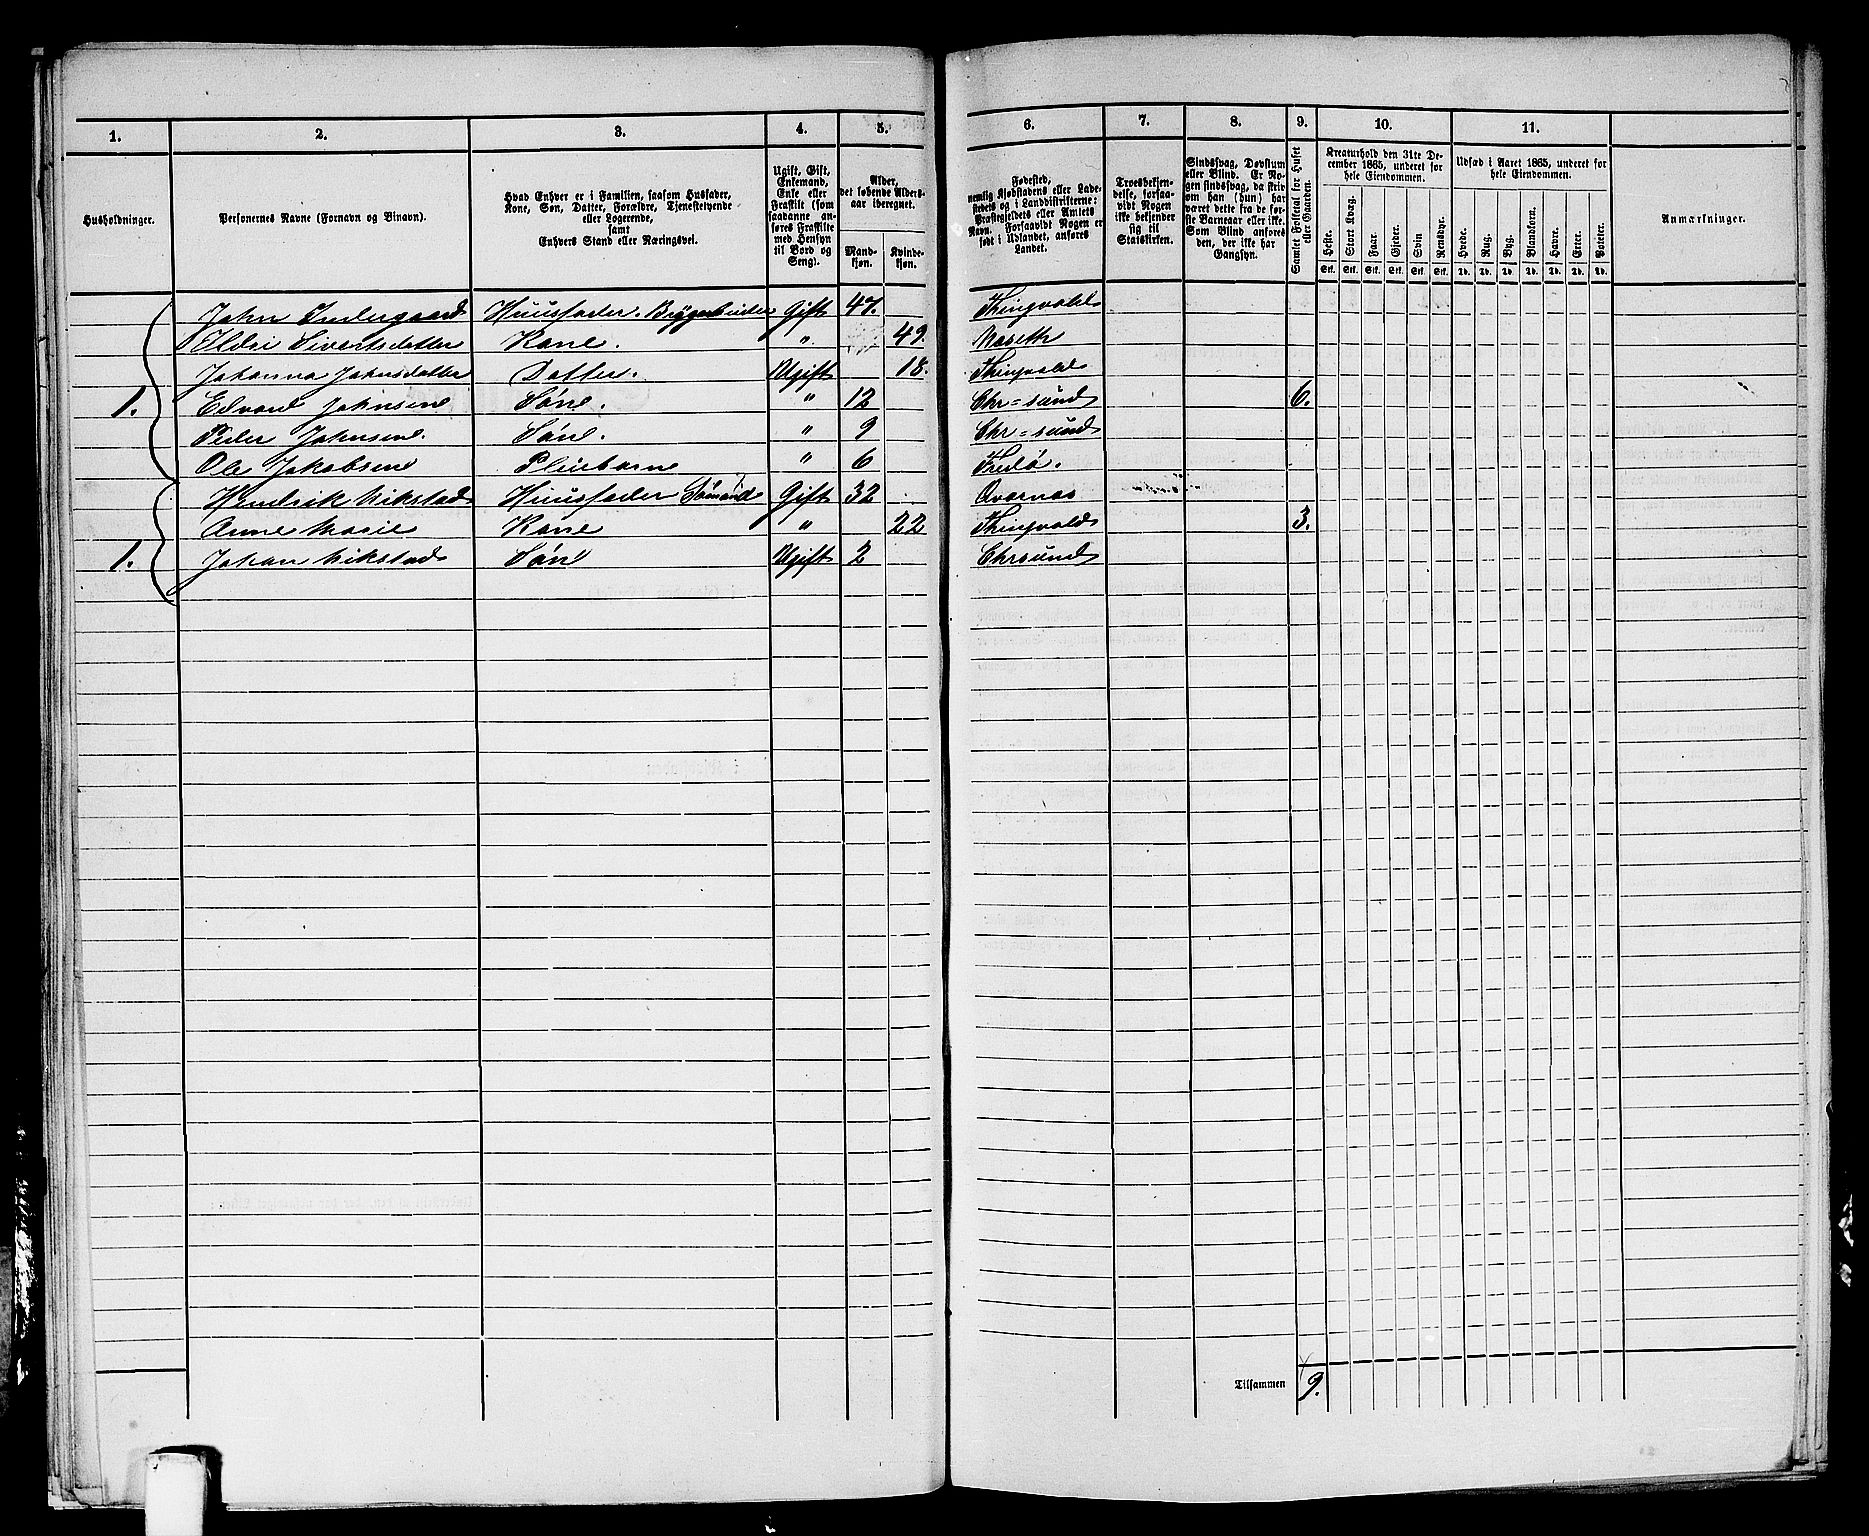 1. 2. 3. 4. 5. 6. 7. 8. 9. 10. 11.
Husholdninger.
Personernes Navne (Fornavn og Binavn).
Hvad Enhver er i Familien, saasom Husfader,
Kone, Søn, Datter, Forældre, Tjenestetyende
eller Logerende,
samt
Enhvers Stand eller Næringsvei.
Ugift, Gift,
Enkemand,
Enke eller
Fraskilt (som
saadanne an-
føres Fraskilte
med Hensyn
til Bord og
Seng).
Alder,
det løbende Alders-
aar iberegnet.
Mand-
kjøn.
Kvinde-
kjøn.
Fødested,
nemlig Kjøbstadens eller Lade-
stedets og i Landdistrikterne:
Præstegjeldets eller Amtets
Navn. Forsaavidt Nogen er
født i Udlandet, anføres
Landet.
Troesbekjen-
delse, forsaa-
vidt Nogen
ikke bekjender
sig til
Statskirken.
Sindssvag, Døvstum
eller Blind. Er No-
gen sindssvag, da skriv
om han (hun) har
været dette fra de før-
ste Barneaar eller ikke.
Som Blind anføres
den, der ikke har
Gangsyn.
Samlet Folketal for Huset
eller Gaarden.
Kreaturhold den 31te De-
cember 1865, underet for
hele Eiendommen.
Heste. Stort Kvæg. Faar. Gjeder. Svin Rensdyr.
Stk. Stk. Stk. Stk. Stk. Stk.
Udsæd i Aaret 1865, underet for
hele Eiendommen.
Hvede. Rug. Byg. Blandkorn. Havre. Erter. Poteter.
Td. Td. Td. Td. Td. Td. Td.
Anmærkninger.
John Indergaard Huusfader. Gift 47. Thingvold
Ildri Sivertsdatter Kone. " 49.
Johanna Johnsdatter Datter. Ugift 18. Thingvold
1. Edvard Johnsene Søne. " 12 Chr=sund 6.
Peder Johnsene. Søne. " 9 Chr=sund
Ole Jakobsene Pleiebarne " 6 Fredø.
Hendrik Vikstad Huusfader Sømand Gift 32 Qvernæs
Anne Marie Kone " 22 Thingvold 3.
1. Johan Vikstad Søn Ugift 2 Chrsund
Tilsammen 9.